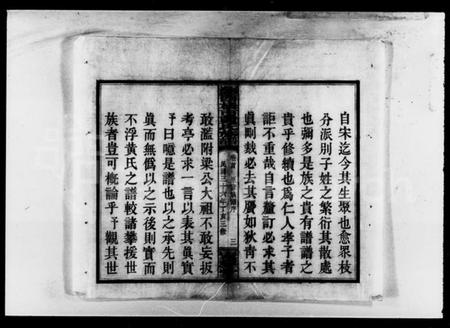 自宋迄今其生聚也愈界枝
分派別子姓之繁衍其散處
也彌多是族之貴有譜譜之
貴乎修續也為仁人孝子者
詎不重哉自言釐訂必求其
眞則裁必去其廣如狄青不
敢濫附梁公大祖不敢妄扳
考亭必求一言以表其眞實
予曰噫是譜也以之承先則
眞而無僞以之示後則實而
不浮黃氏之譜較諸攀援世
族者豈可槪論乎予觀其世